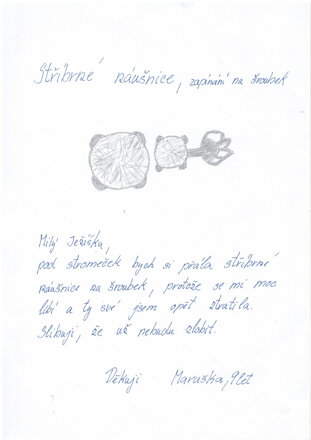 Stříbrné náušnice, zapínání na šroubek
Milý Ježíšku,
pod stromeček bych si přála stříbrné
náušnice na šroubek, protože se mi moc
líbí a ty své jsem opět ztratila.
Slibuji, že už nebudu zlobit.
Děkuji Maruška, 9 let